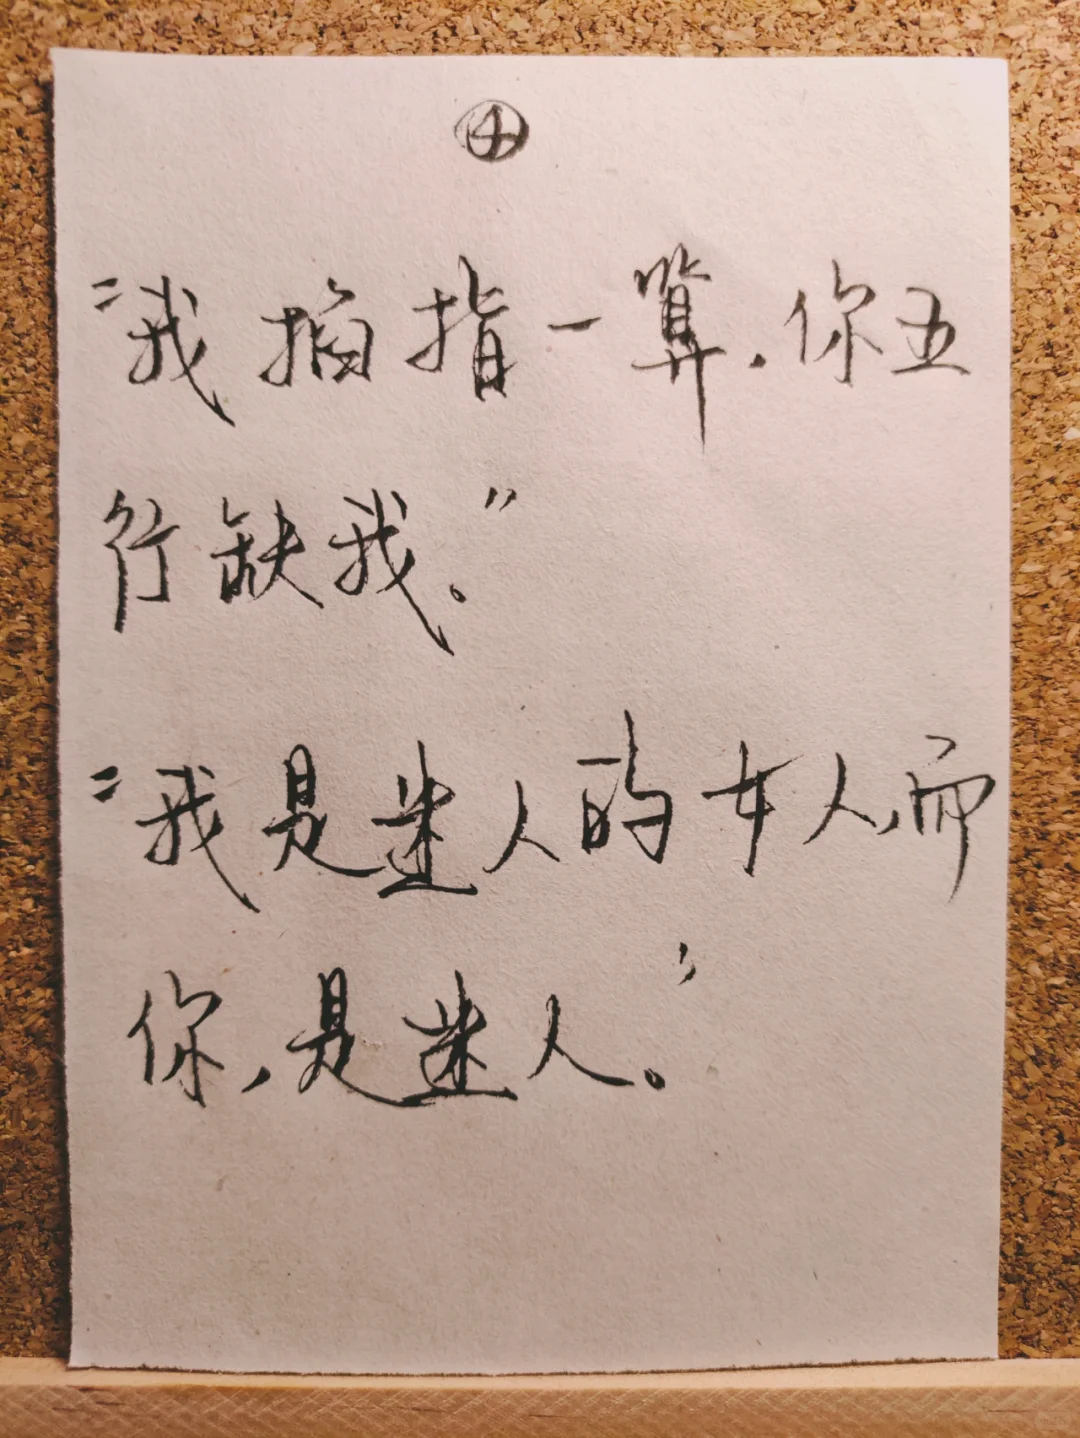 ④
“我掐指一算，你五
行缺我.”
“我是迷人的女人,而
你,是迷人。”